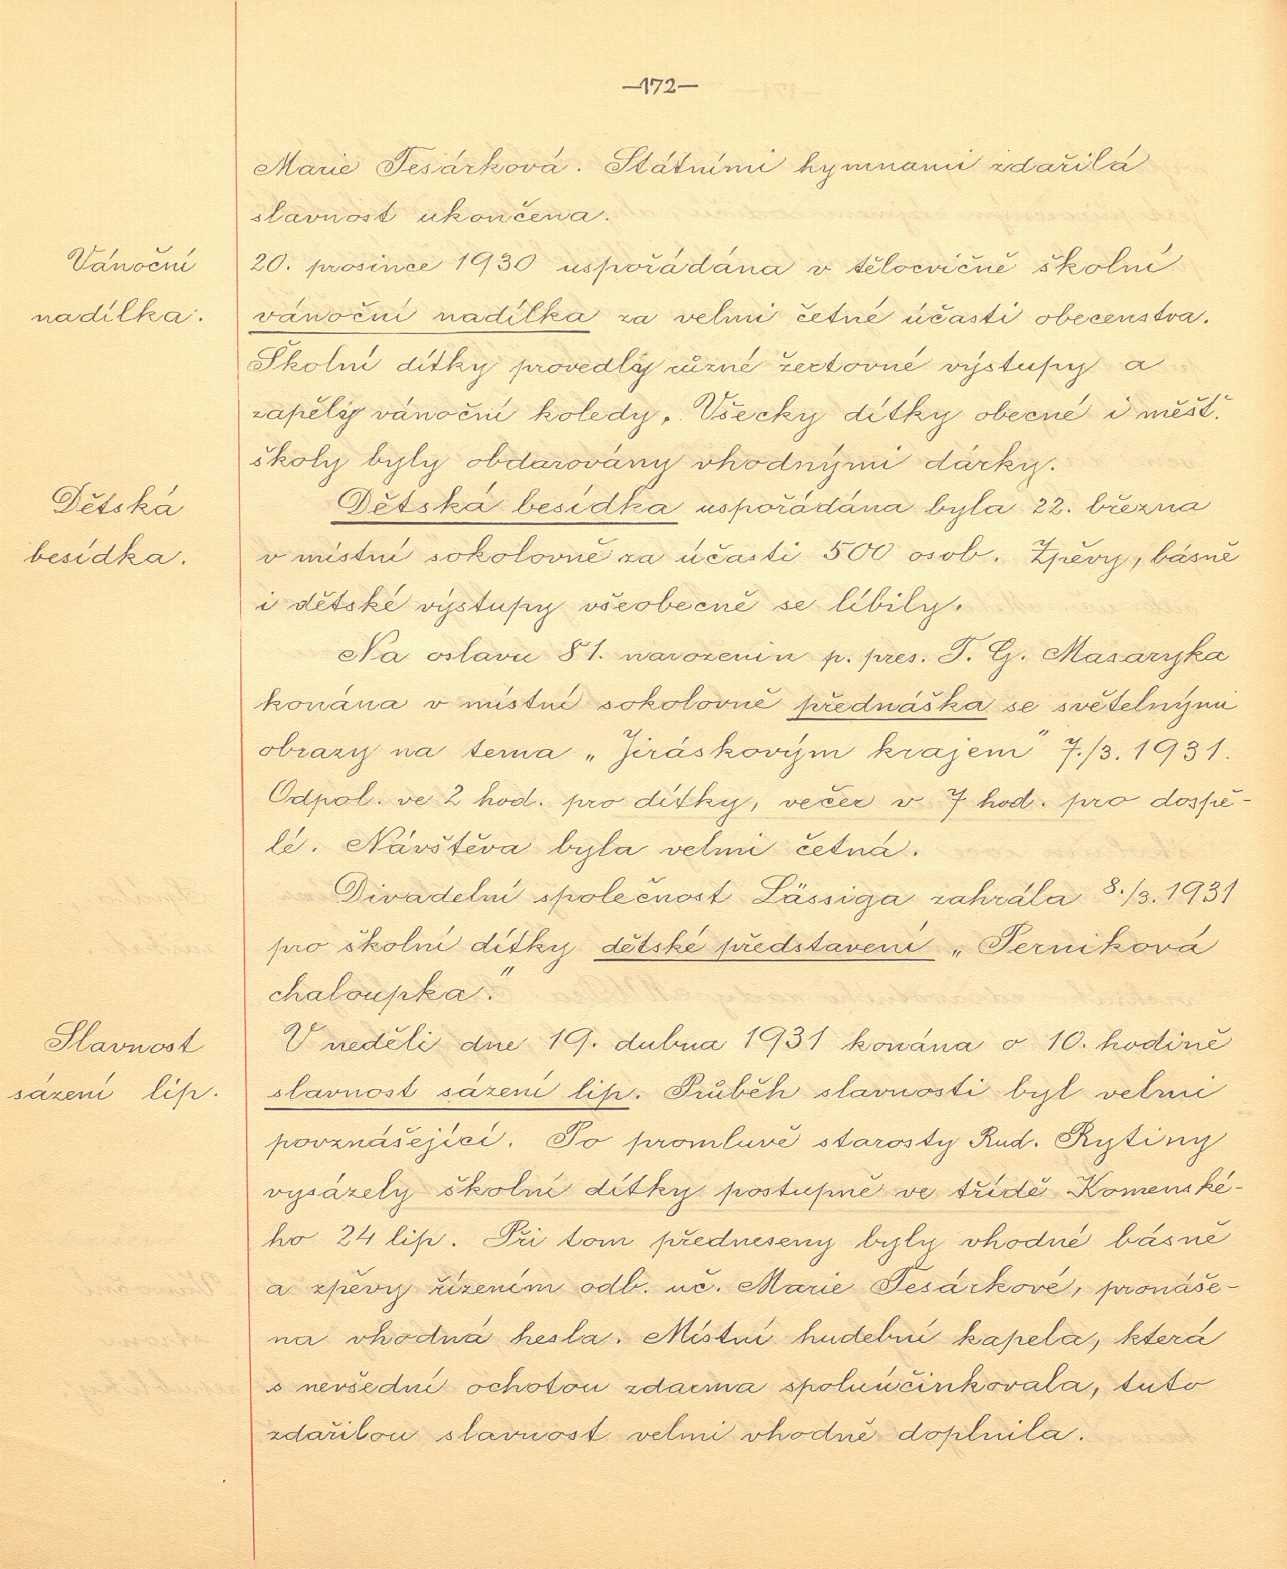 —172—
Marie Tesárková. Státními hymnami zdařilá
slavnost ukončena.
Vánoční
nadílka.
20. prosince 1930 uspořádána v tělocvičně školní
vánoční nadílka za velmi četné účasti obecenstva.
Školní dítky provedly různé žertovné výstupy a
zapěly vánoční koledy. Všecky dítky obecné i měšť.
školy byly obdarovány vhodnými dárky.
Dětská
besídka.
Dětská besídka uspořádána byla 22. března
v místní sokolovně za účasti 500 osob. Zpěvy, básně
i dětské výstupy všeobecně se líbily.
Na oslavu 81. narozenin p. pres. T. G. Masaryka
konána v místní sokolovně přednáška se světelnými
obrazy na tema „Jiráskovým krajem" 7./3. 1931.
Odpol. ve 2 hod. pro dítky, večer v 7 hod. pro dospě-
lé. Návštěva byla velmi četná.
Divadelní společnost Lässiga zahrála 8./3. 1931
pro školní dítky dětské představení „Perníková
chaloupka."
Slavnost
sázení lip.
V neděli dne 19. dubna 1931 konána o 10. hodině
slavnost sázení lip. Průběh slavnosti byl velmi
povznášející. Po promluvě starosty Rud. Rytiny
vysázely školní dítky postupně ve třídě Komenské-
ho 24 lip. Při tom předneseny byly vhodné básně
a zpěvy řízením odb. uč. Marie Tesárkové, pronáše-
na vhodná hesla. Místní hudební kapela, která
s nevšední ochotou zdarma spoluúčinkovala, tuto
zdařilou slavnost velmi vhodně doplnila.